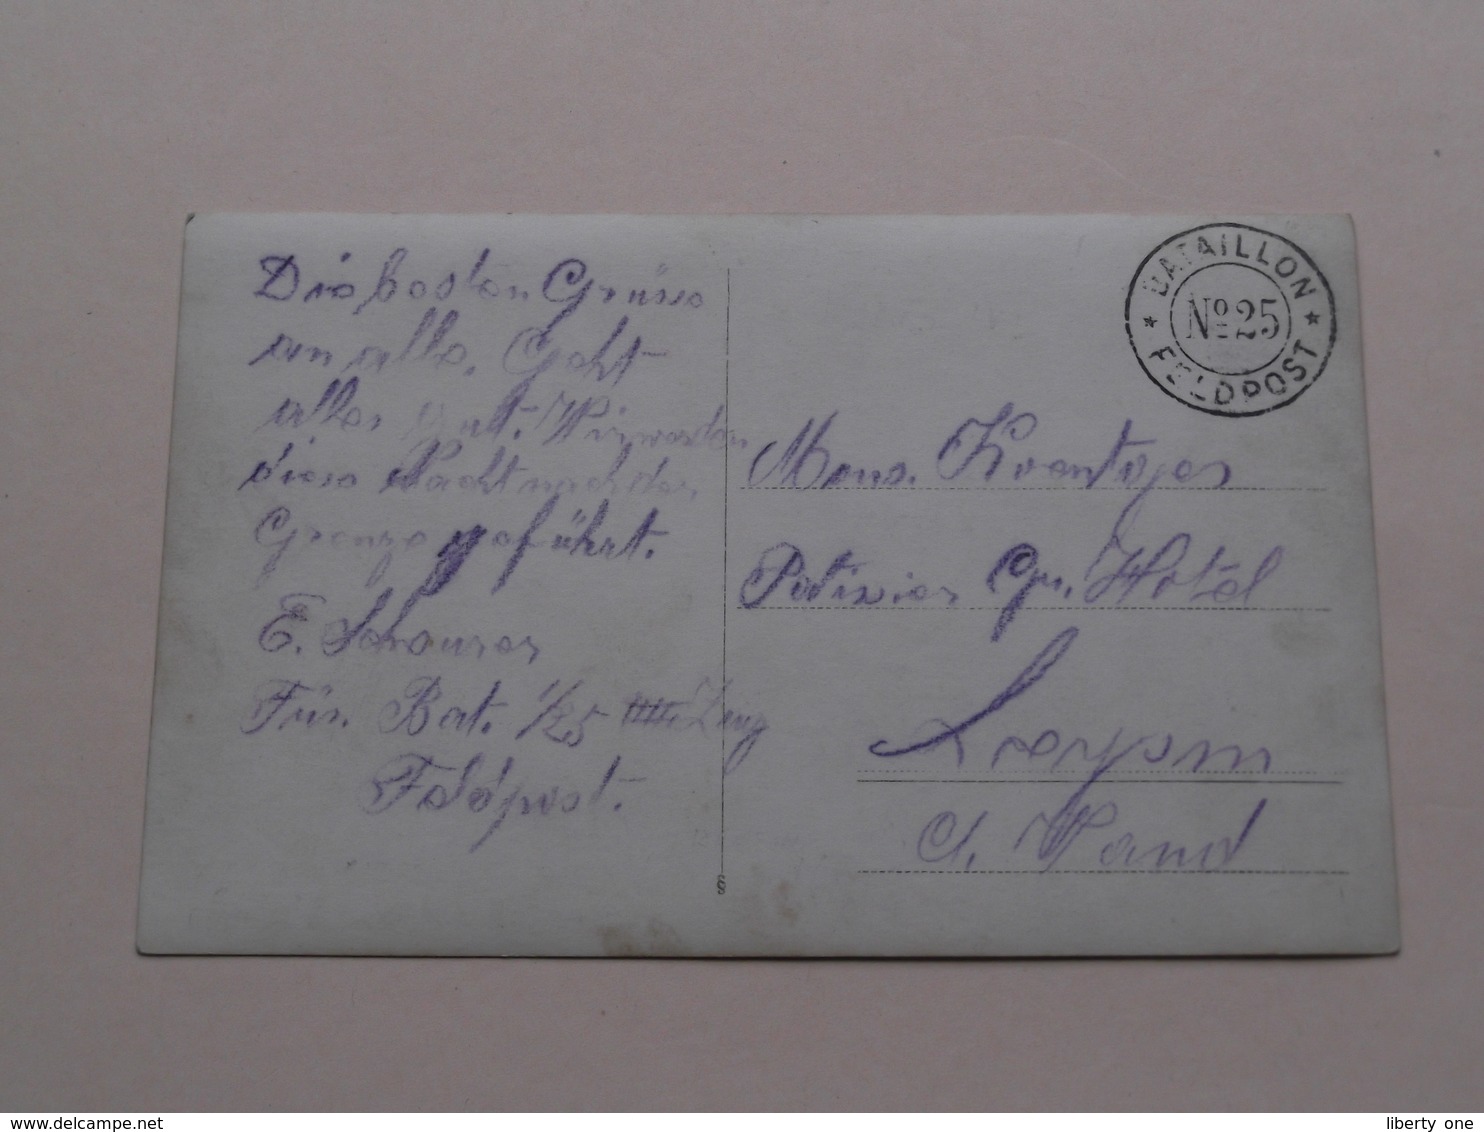 Die besten Grüsse
an alle. Geht
alles gut. Wir werden
diese Nacht nach der
Grenze geführt.
E. Scheurer
Füs. Bat. 1/25 Zug
Feldpost.
BATAILLON
No 25
FELDPOST
Mons.
Patissier Gr. Hotel
Leysin
Ct. Waud
www.delcampe.net
liberty one